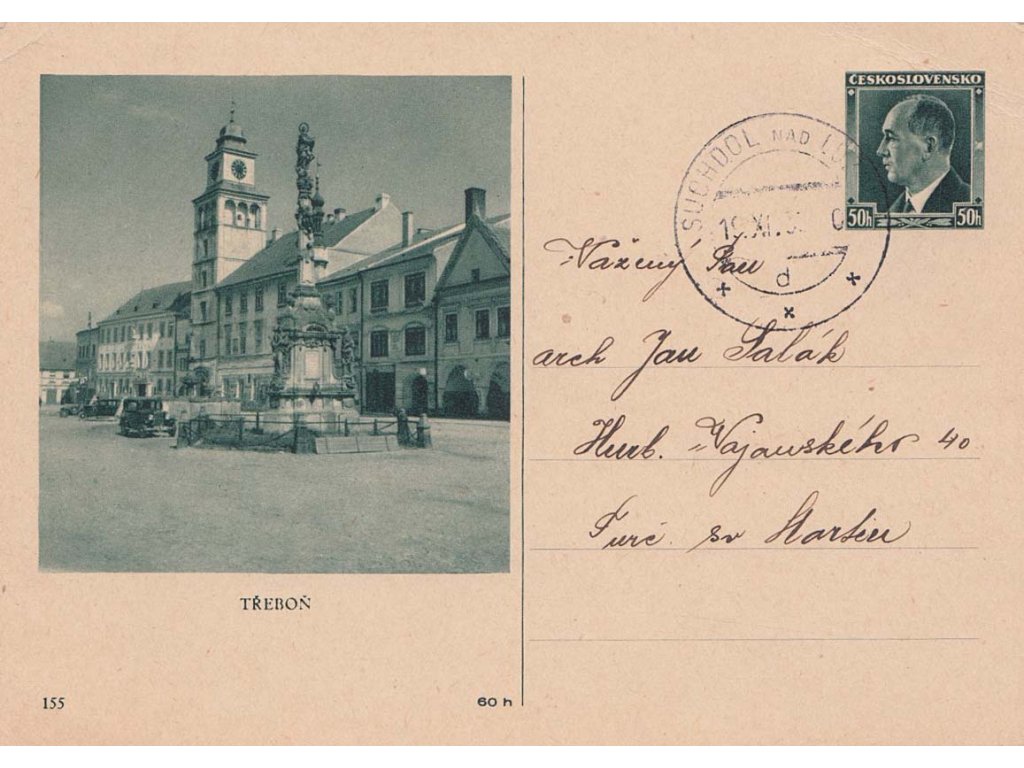 TŘEBOŇ
155
60 h
ČESKOSLOVENSKO
50h 50h
SUCHDOL NAD
XI.
d
Vážený Pán
arch Jan Salák
Hurb. Vajanského 40
Turč. sv Martin